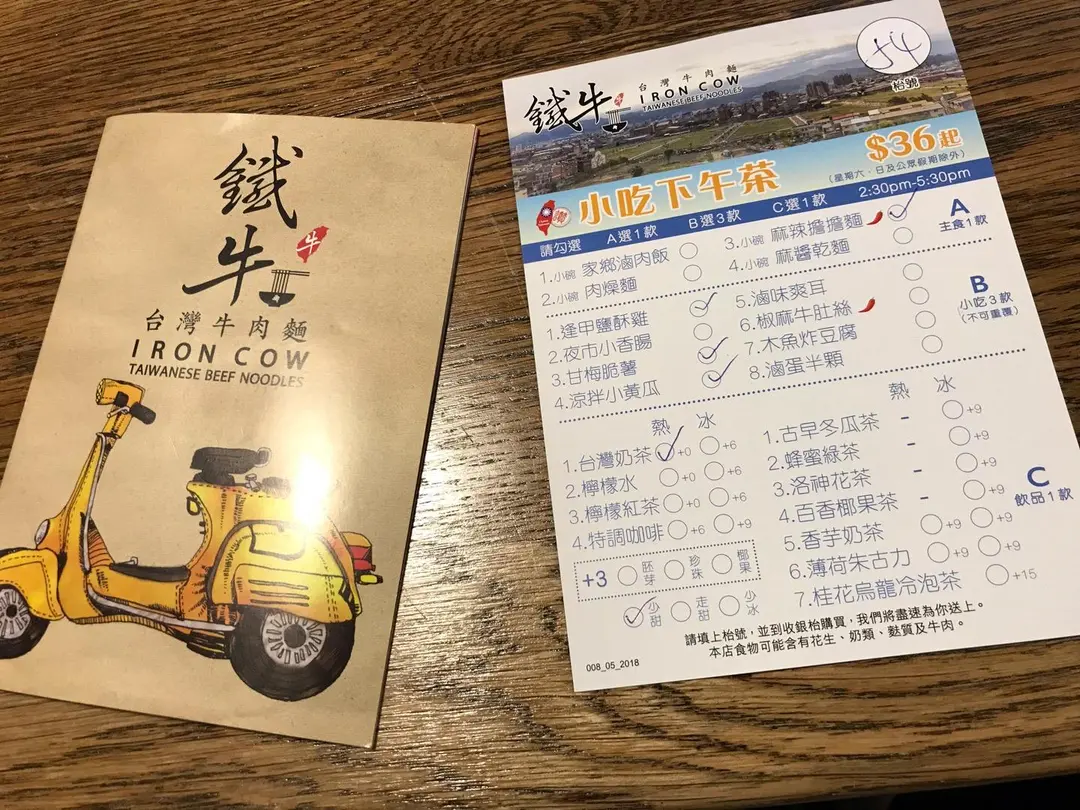 鐵
牛
牛
台灣牛肉麵
IRON COW
TAIWANESE BEEF NOODLES
鐵牛
台灣牛肉麵
IRON COW
TAIWANESE BEEF NOODLES
54
枱號
小吃下午茶
$36起
(星期六、日及公眾假期除外)
請勾選 A選1款 B選3款 C選1款 2:30pm-5:30pm
1.小碗 家鄉滷肉飯
2.小碗 肉燥麵
3.小碗 麻辣擔擔麵
4.小碗 麻醬乾麵
A
主食1款
1.逢甲鹽酥雞
2.夜市小香腸
3.甘梅脆薯
4.涼拌小黃瓜
5.滷味爽耳
6.椒麻牛肚絲
7.木魚炸豆腐
8.滷蛋半顆
B
小吃3款
(不可重覆)
熱 冰
1.台灣奶茶 +0 +6
2.檸檬水 +0 +6
3.檸檬紅茶 +0 +6
4.特調咖啡 +6 +9
+3 胚芽 珍珠 椰果
少甜 走甜 少冰
熱 冰
1.古早冬瓜茶 - +9
2.蜂蜜綠茶 - +9
3.洛神花茶 - +9
4.百香椰果茶 - +9
5.香芋奶茶 +9 +9
6.薄荷朱古力 +9 +9
7.桂花烏龍冷泡茶 +15
C
飲品1款
請填上枱號，並到收銀枱購買，我們將盡速為你送上。
本店食物可能含有花生、奶類、麩質及牛肉。
008_05_2018